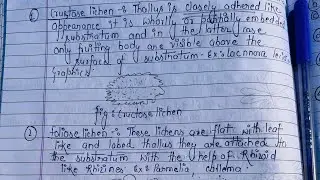 ① Crustose lichen → Thallus is closely adhered like
appearance it is wholly or partially embedded
substratum and in the latter case
only fruiting body are visible above the
surface of substratum. Ex:- Lecanora
Graphics
fig: Crustose lichen
2) foliose lichen :- These lichens are flat with leaf
like and lobed thallus they are attached to
the substratum with the help of Rhizoid
like Rhizines Ex:- Parmelia,